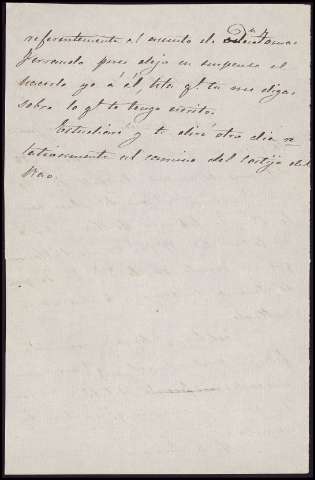 referentemente al asunto de Dn Tomas
Ferrando pues dejo en suspenso el
hacerlo yo á él, hta qe tu me digas
sobre lo qe te tengo escrito.
Estudiaré y te diré otro dia re
lativamente al camino del Cortijo del
Rao.